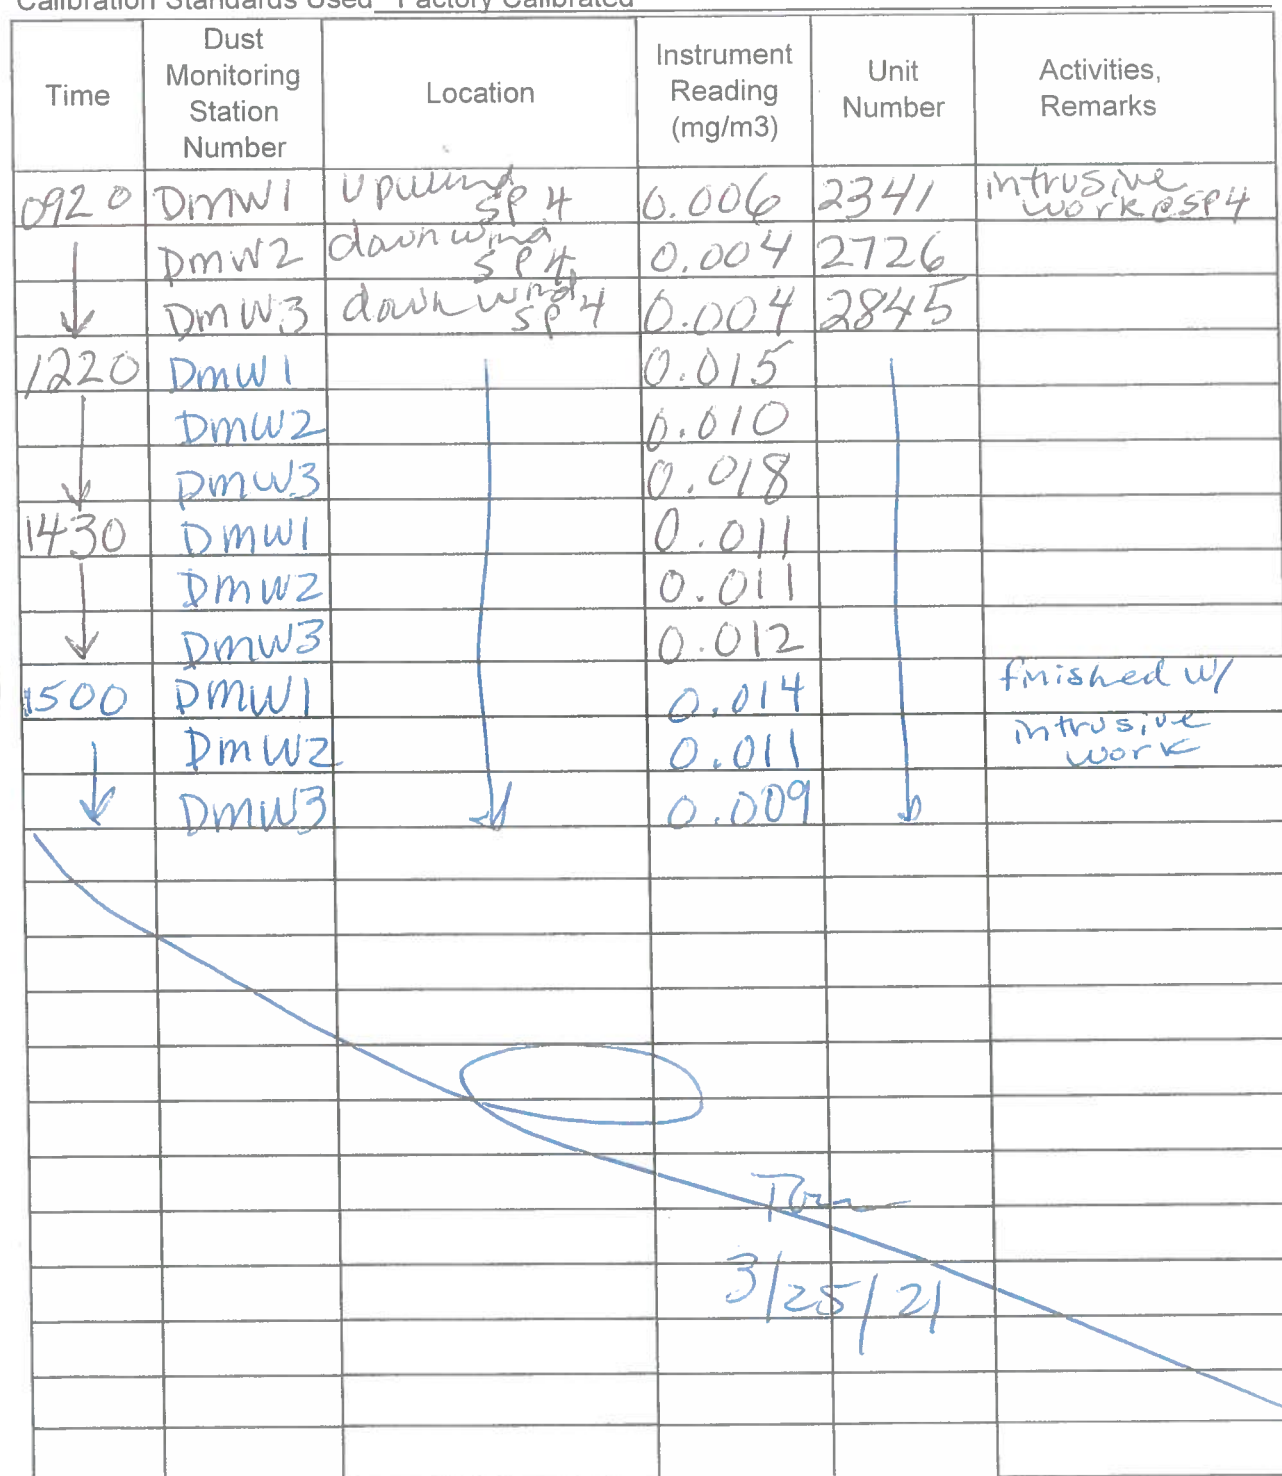 Calibration Standards Used Factory Calibrated
Time Dust Monitoring Station Number Location Instrument Reading (mg/m3) Unit Number Activities, Remarks
0920 DMW1 upwind SP4 0.006 2341 intrusive work@SP4
DMW2 downwind SP4 0.004 2726
DMW3 downwind SP4 0.004 2845
1220 DMW1 0.015
DMW2 0.010
DMW3 0.018
1430 DMW1 0.011
DMW2 0.011
DMW3 0.012
1500 DMW1 0.014 finished w/
DMW2 0.011 intrusive work
DMW3 0.009
3/25/21